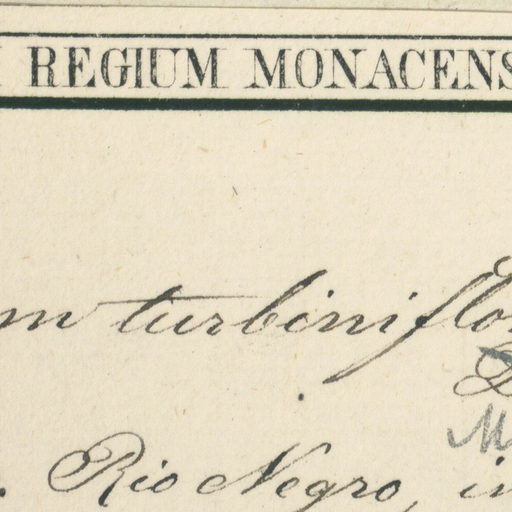 REGIUM MONACENS
m turbiniflo
Rio Negro, in